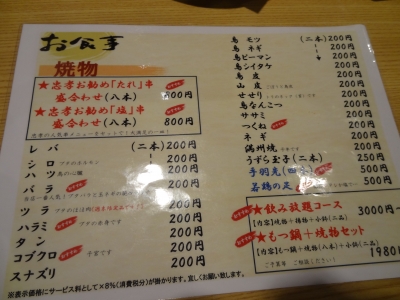 お食事
焼物
★忠孝お勧め「たれ」串
盛合わせ(八本) 800円
★忠孝お勧め「塩」串
盛合わせ(八本) 800円
レバ (二本) 200円
シロ 200円
ハツ 200円
バラ 200円
ツラ 200円
ハラミ 200円
タン 200円
コブクロ 子宮です 200円
スナズリ 200円
鳥モツ (二本) 200円
鳥ネギ 200円
鳥ピーマン 200円
鳥シイタケ 200円
鳥皮 200円
山皮 200円
せせり 200円
鳥なんこつ 200円
ササミ 200円
つくね 200円
ネギ 200円
満州焼 200円
うずら玉子 (二本) 250円
手羽先 500円
若鶏の足 500円
★飲み放題コース 3000円〜
★もつ鍋+焼物セット
1980円
※表示価格にサービス料として×8%(消費税分)が掛かります。宜しくお願い致します。